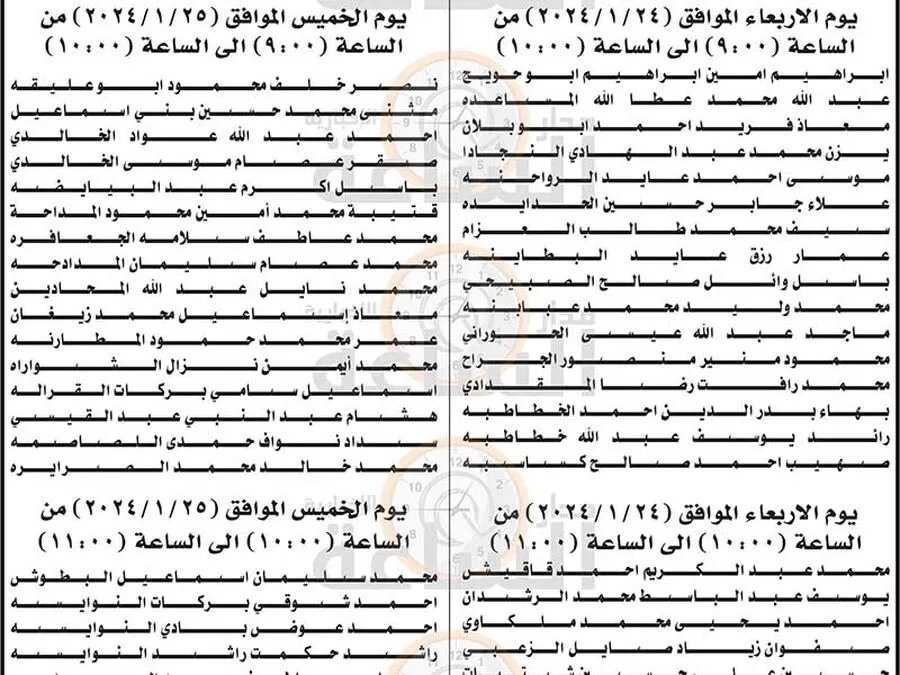 يوم الاربعاء الموافق (٢٠٢٤/١/٢٤) من
الساعة (٩:٠٠) الى الساعة (١٠:٠٠)
ابراهيم امين ابراهيم ابو حويج
عبد الله محمد عطا الله المساعده
معاذ فريد احمد ابو بلان
يزن محمد عبد الهادي النجادا
موسى احمد عايد الرواحنه
علاء جابر حسين الحدايده
سيف محمد طالب العزام
عمار رزق عايد البطاينه
باسل وائل صالح الصبيحي
محمد وليد محمد عبابنه
ماجد عبد الله عيسى الحوراني
محمود منير منصور الجراح
محمد رافت رضا المقدادي
بهاء بدر الدين احمد الخطاطبه
رائد يوسف عبد الله خطاطبه
صهيب احمد صالح كساسبه
يوم الاربعاء الموافق (٢٠٢٤/١/٢٤) من
الساعة (١٠:٠٠) الى الساعة (١١:٠٠)
محمد عبد الكريم احمد قاقيش
يوسف عبد الباسط محمد الرشدان
احمد يحيى محمد ملكاوي
صفوان زياد صايل الزعبي
يوم الخميس الموافق (٢٠٢٤/١/٢٥) من
الساعة (٩:٠٠) الى الساعة (١٠:٠٠)
نصر خلف محمود ابو عليقه
مثنى محمد حسين بني اسماعيل
احمد عبد الله عواد الخالدي
صقر عصام موسى الخالدي
باسل اكرم عبد البيايضه
قتيبة محمد أمين محمود المداحة
محمد عاطف سلامه الجعافره
محمد عصام سليمان المدادحه
محمد نايل عبد الله المحادين
معاذ إسماعيل محمد زيغان
عمر محمد حمود المطارنه
محمد أيمن نزال الشواراه
اسماعيل سامي بركات القراله
هشام عبد النبي عبد القيسي
سداد نواف حمدى اللصاصمه
محمد خالد محمد الصرايره
يوم الخميس الموافق (٢٠٢٤/١/٢٥) من
الساعة (١٠:٠٠) الى الساعة (١١:٠٠)
محمد سليمان اسماعيل البطوش
احمد شوقي بركات النوايسه
احمد عوض بادي النوايسه
راشد حكمت راشد النوايسه
مدار
الساعة
الإخبارية